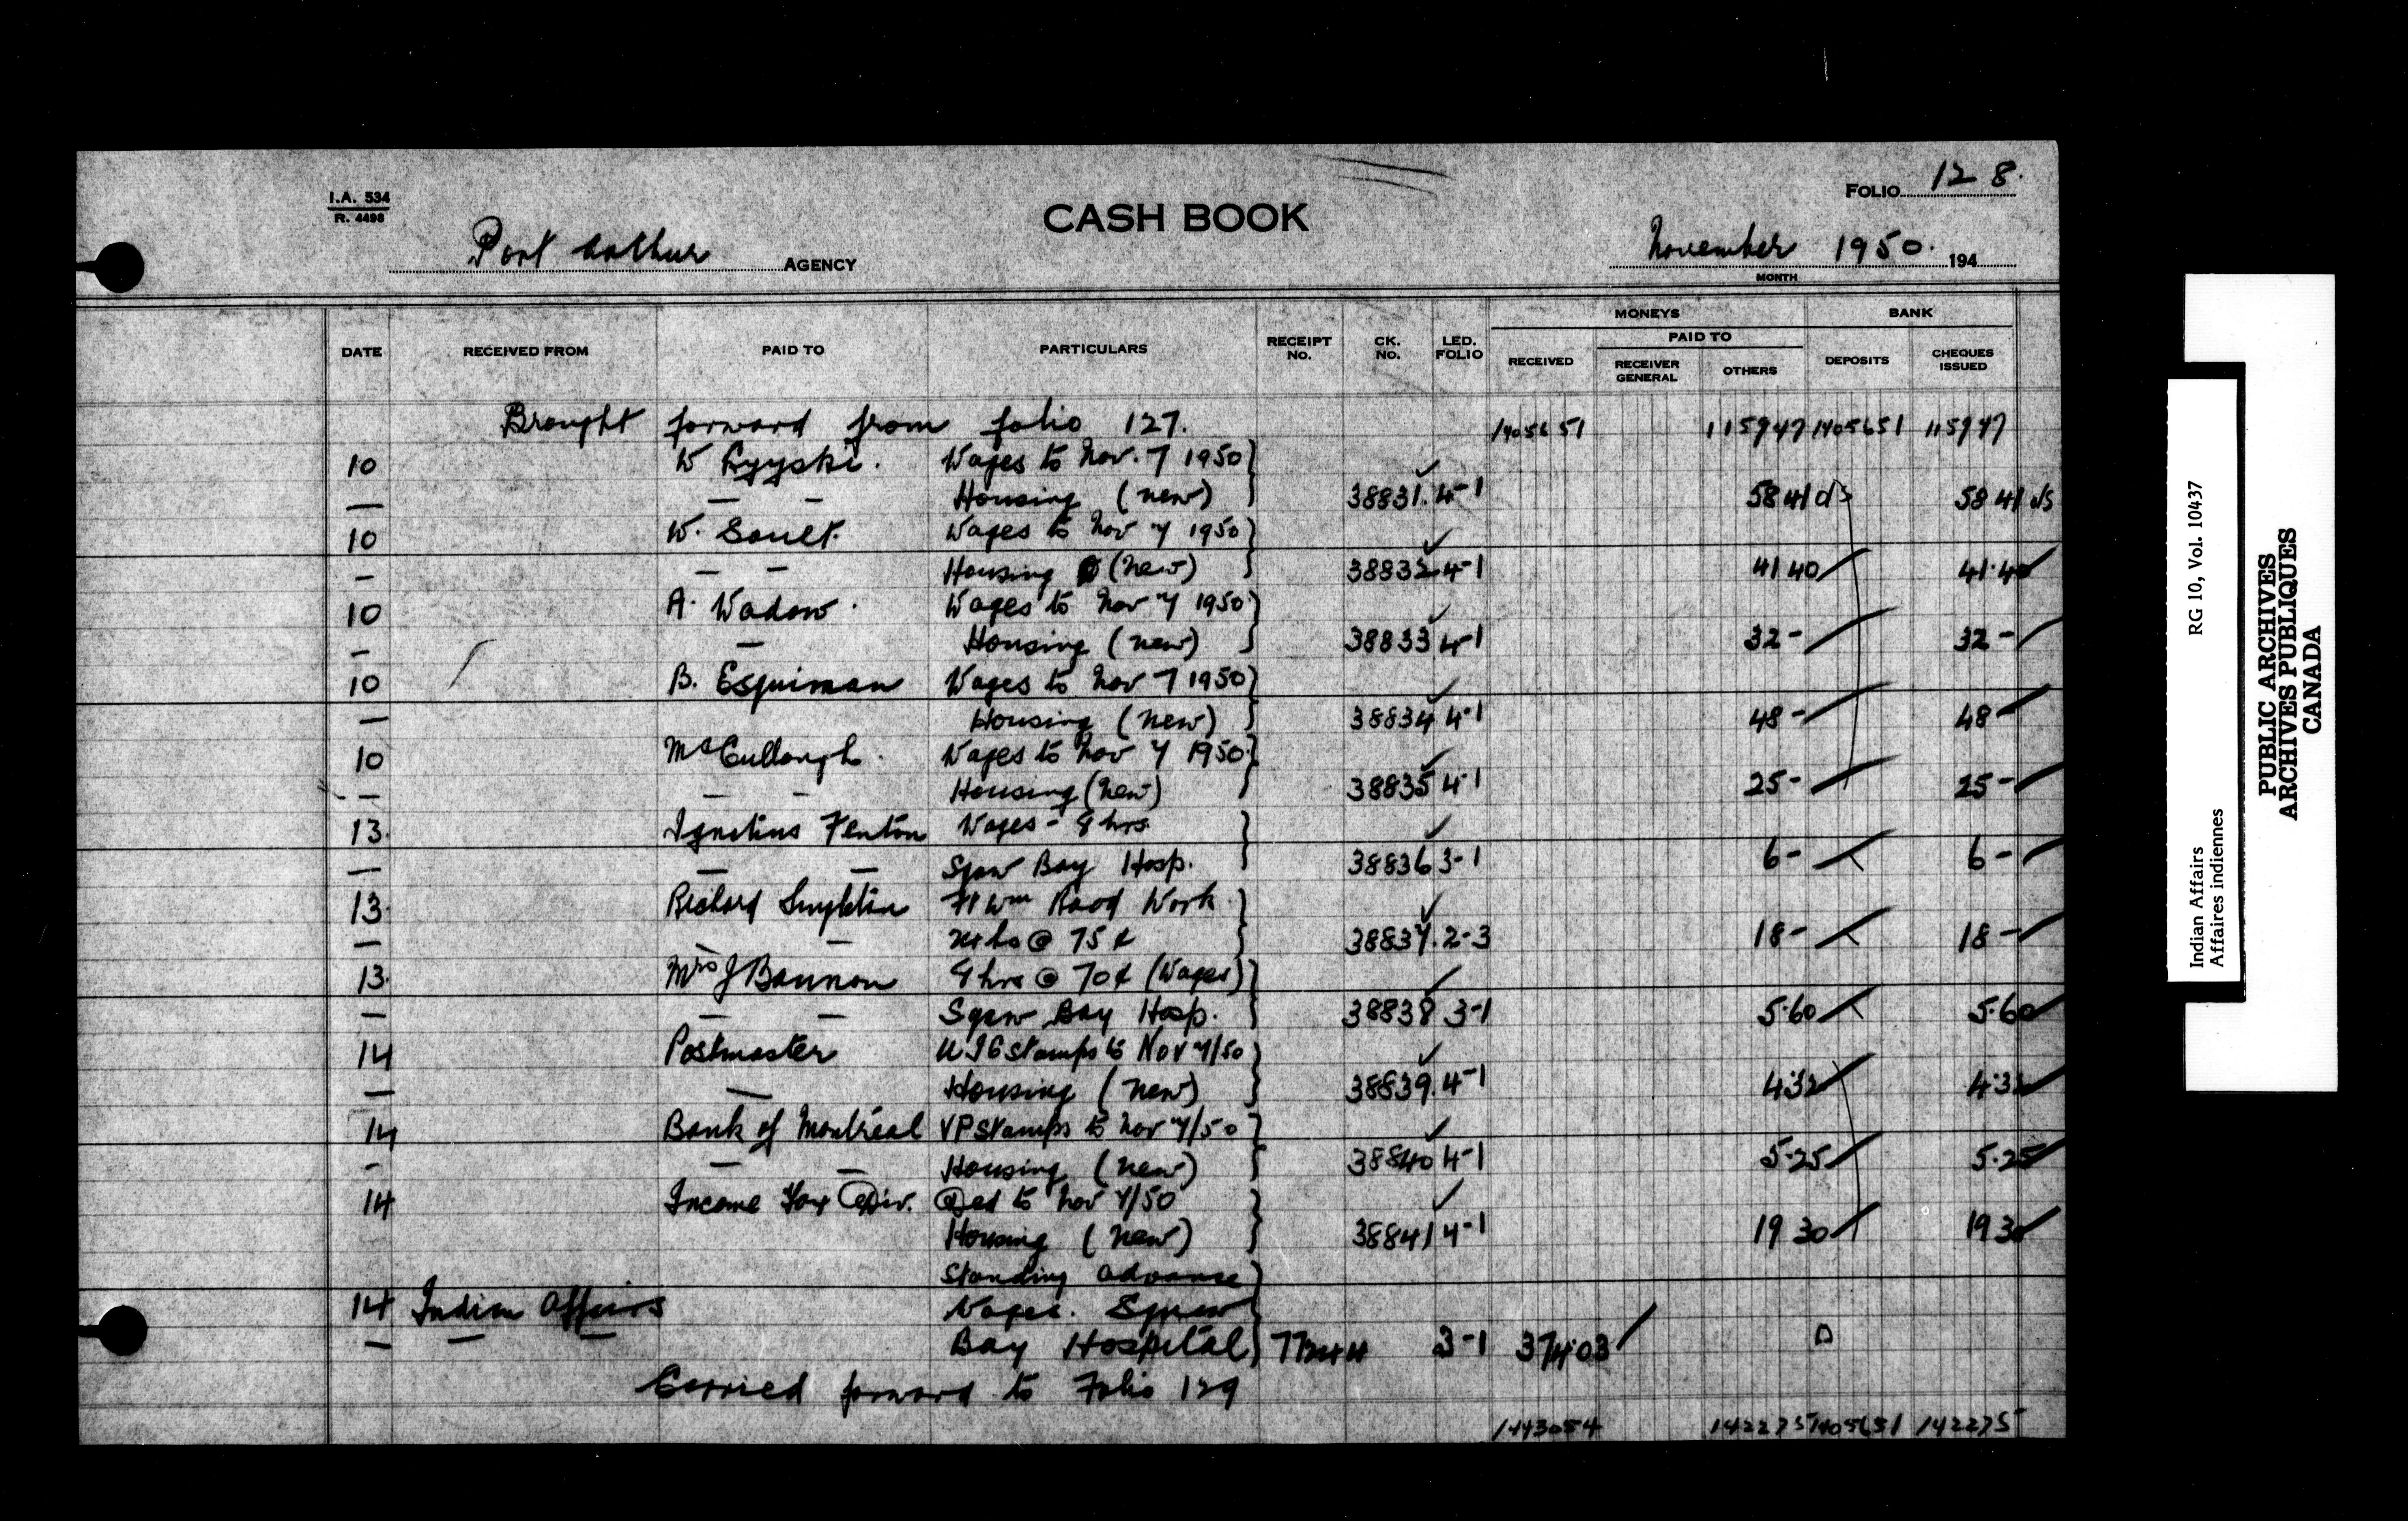 I.A. 534
R. 4498
CASH BOOK
FOLIO 128.
Port Arthur AGENCY
November 1950. 194
MONTH
MONEYS BANK
DATE RECEIVED FROM PAID TO PARTICULARS RECEIPT No. CK. No. LED. FOLIO RECEIVED PAID TO RECEIVER GENERAL OTHERS DEPOSITS CHEQUES ISSUED
Brought forward from folio 127. 1405651 115947 1405651 115947
10 W Wages to Nov. 7 1950
— — — Housing (new) 38831. 4-1 5841 5841
10 W. Sault. Wages to Nov 7 1950
— — — Housing (new) 38832 4-1 4140 41.40
10 A. Wadow. Wages to Nov 7 1950
— — Housing (new) 38833 4-1 32- 32-
10 B. Esquiman Wages to Nov 7 1950
— Housing (new) 38834 4-1 48- 48-
10 McCullough. Wages to Nov 7 1950
— — — Housing (new) 38835 4-1 25- 25-
13. Ignatius Fenton Wages - 8 hrs.
— — — Squaw Bay Hosp. 38836 3-1 6- 6-
13. Richard Ft Wm Road Work
— — 24 hs @ 75¢ 38837. 2-3 18- 18-
13. Mrs J Bannon 8 hrs @ 70¢ (Wages)
— — — Squaw Bay Hosp. 38838 3-1 5.60 5.60
14 Postmaster U I C stamps to Nov 7/50
— — Housing (new) 38839. 4-1 4.32 4.32
14 Bank of Montreal VP stamps to Nov 7/50
- — — Housing (new) 38840 4-1 5.25 5.25
14 Income Tax Div. Ded to Nov 7/50
Housing (new) 38841 4-1 19 30 19 30
Standing advance
14 Indian Affairs Wages. Squaw
— — — Bay Hospital 3-1 374.03
Carried forward to Folio 129
1443054 142275 1405651 142275
Indian Affairs RG 10, Vol. 10437
Affaires indiennes
PUBLIC ARCHIVES
ARCHIVES PUBLIQUES
CANADA